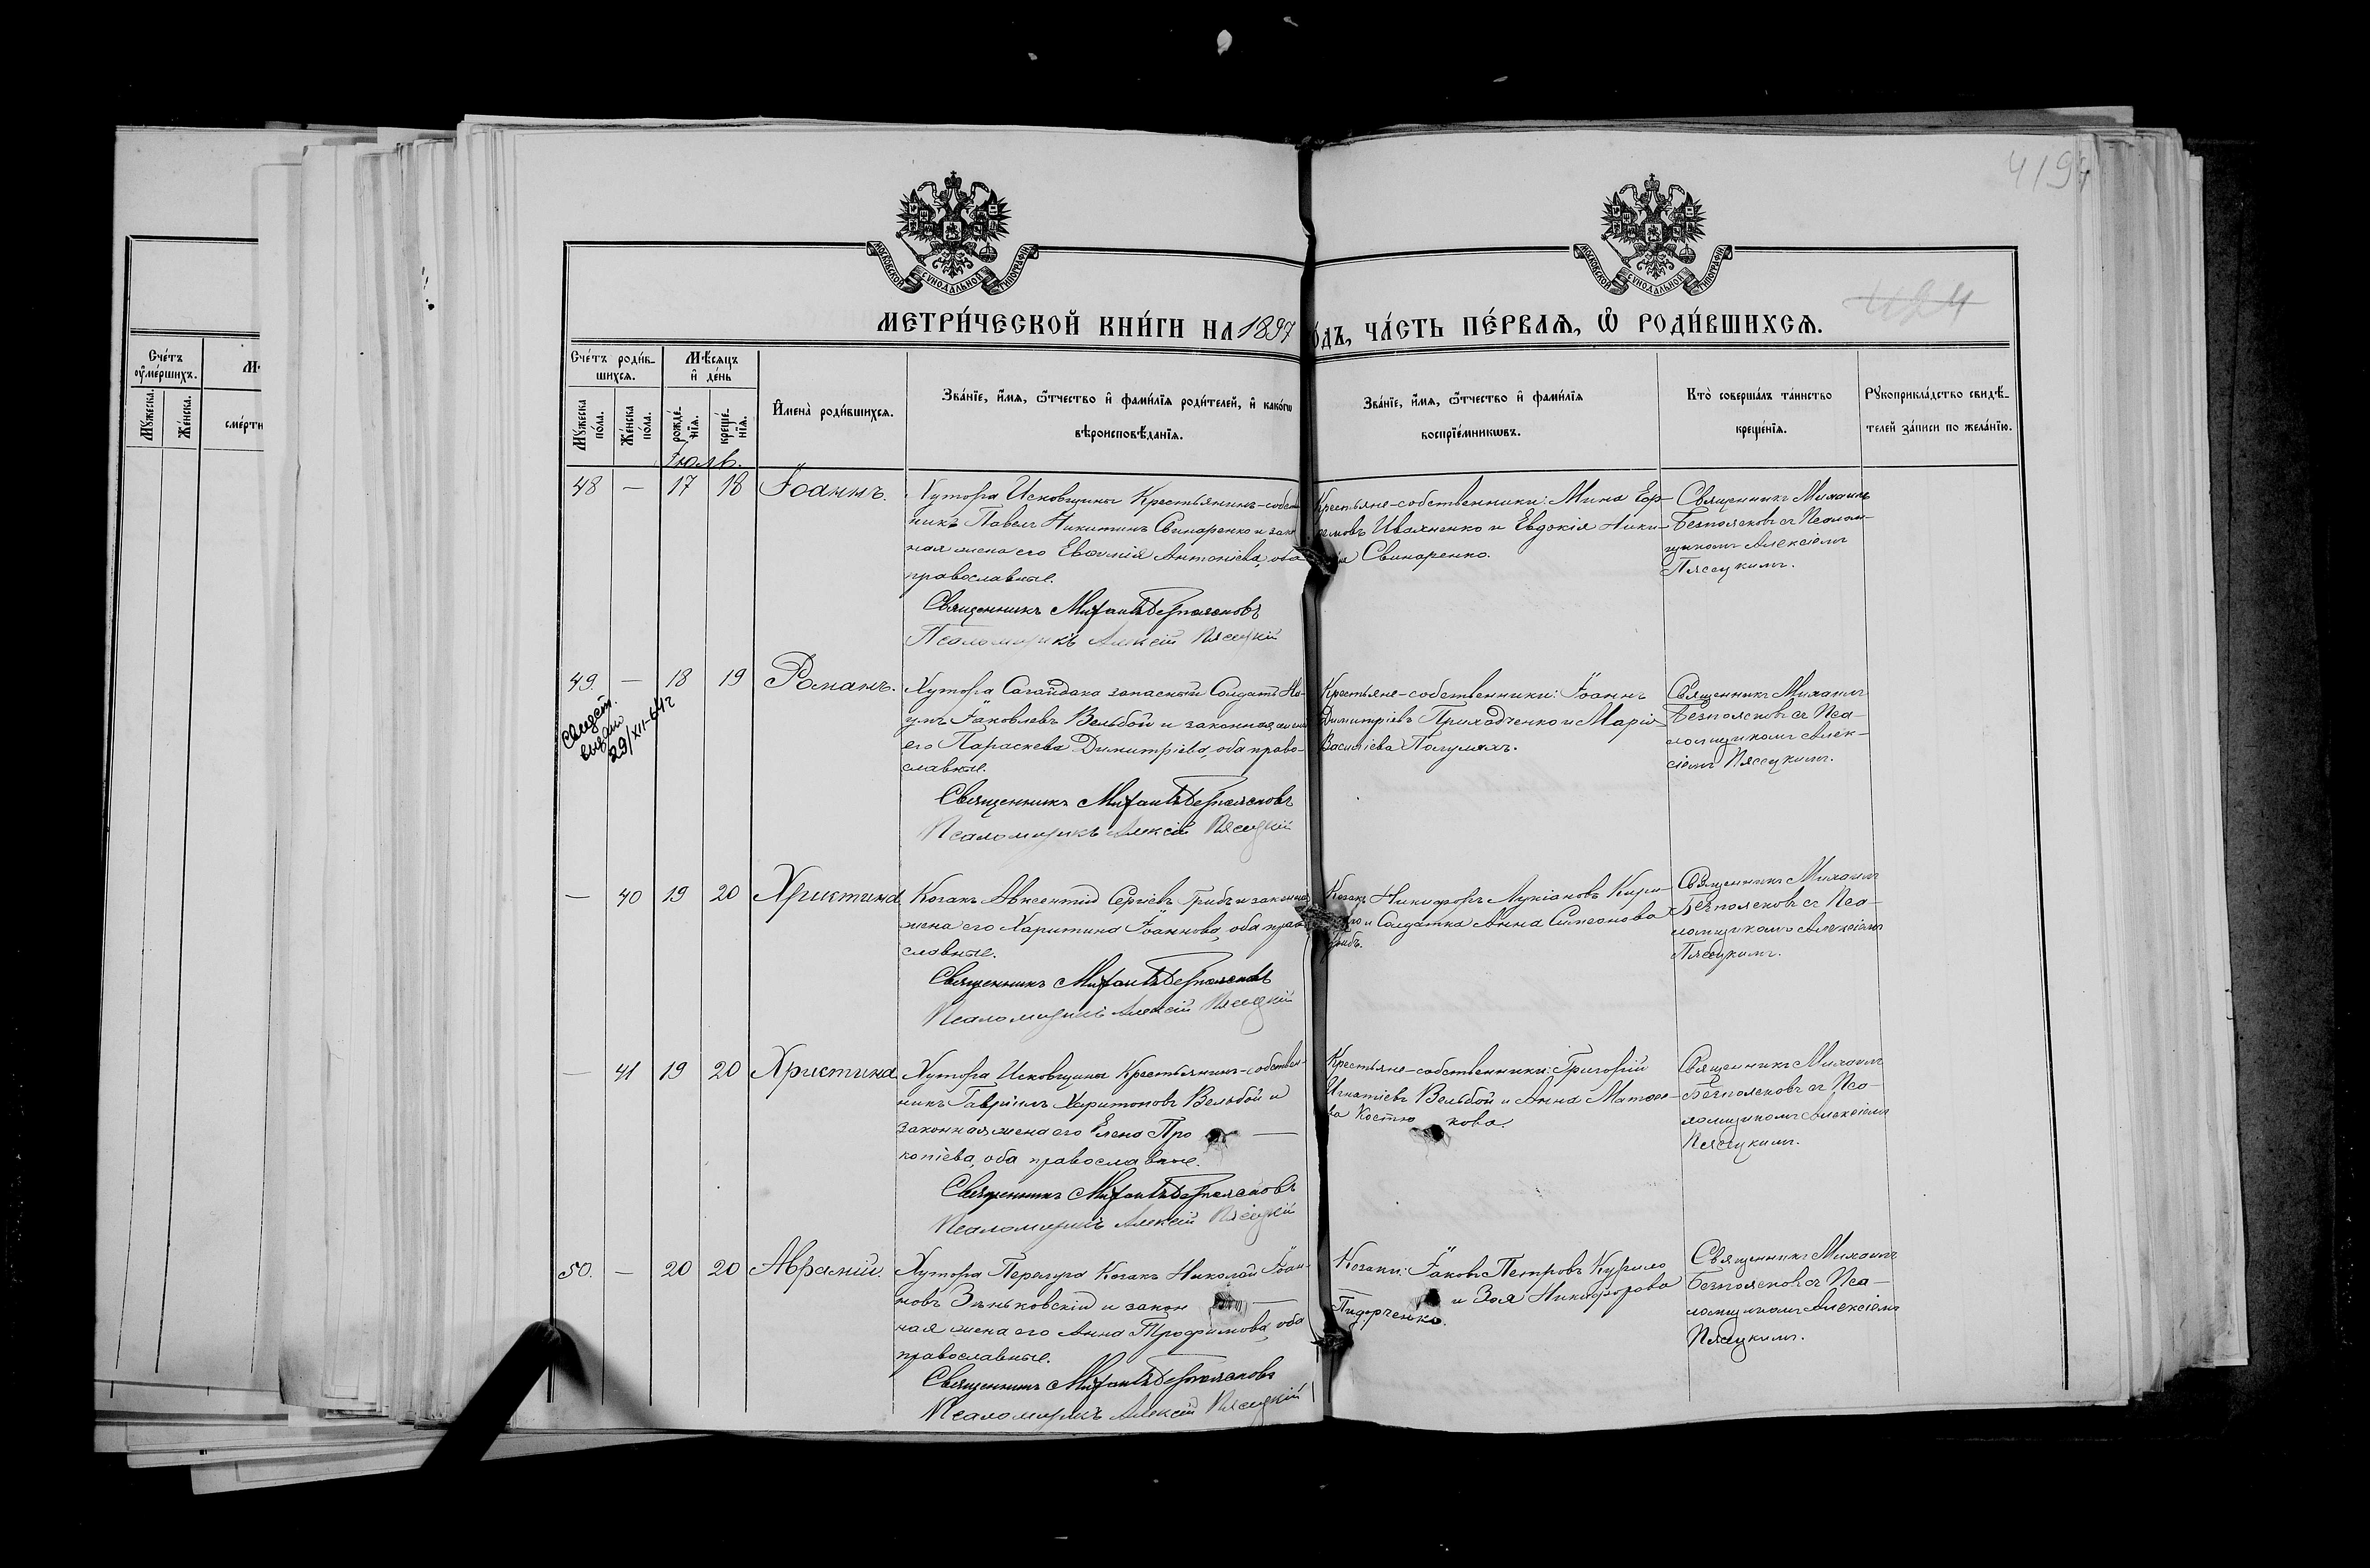 419
МОСКОВСКОЙ СѴНОДАЛЬНОЙ ТИПОГРАФІИ
МОСКОВСКОЙ СѴНОДАЛЬНОЙ ТИПОГРАФІИ
МЕТРИ́ЧЕСКОЙ КНИ́ГИ НА 1897 ГО́ДЪ, ЧА́СТЬ ПЕ́РВАѦ, Ѡ҆ РОДИ́ВШИХСѦ.
Сче́тъ ᲂу҆ме́ршихъ.
Мꙋ́жеска.
Же́нска.
сме́рти
Сче́тъ роди́вшихсѧ.
Мꙋ́жеска по́ла.
Же́нска по́ла.
Мѣ́сѧцъ и҆ де́нь
рожде́нїѧ.
креще́нїѧ.
И҆мена̀ роди́вшихсѧ.
Зва́нїе, и҆́мѧ, ѻ҆́тчество и҆ фами́лїѧ роди́телей, и҆ како́гѡ
вѣроисповѣ́данїѧ.
Зва́нїе, и҆́мѧ, ѻ҆́тчество и҆ фами́лїѧ
воспрїе́мникѡвъ.
Кто̀ соверша́лъ та́инство
креще́нїѧ.
Рꙋкоприкла́дство свидѣ́-
телей за́писи по жела́нїю.
Іюль.
48 — 17 18 Іоаннъ.
Хутора Исковщины Крестьянинъ-собст
никъ Павелъ Никитинъ Свинаренко и зако
ная жена его Евѳимія Антоніева, оба
православные.
Священникъ Михаилъ Безпоясковъ
Псаломщикъ Алексій Пясецкій
Крестьяне-собственники: Мина Ефре-
мовъ Ивахненко и Евдокія Ники-
на Свинаренко.
Священникъ Михаилъ
Безпоясковъ съ Псалом-
щикомъ Алексіемъ
Пясецкимъ.
49. — 18 19 Романъ.
Свидет.
выдано
29/XII-64 г
Хутора Сагайдака запасный Солдатъ На-
умъ Іаковлевъ Вельбой и законная жена
его Параскева Димитріева, оба право-
славные.
Священникъ Михаилъ Безпоясковъ
Псаломщикъ Алексій Пясецкій
Крестьяне-собственники: Іоаннъ
Димитріевъ Приходченко и Марія
Василіева Полуляхъ.
Священникъ Михаилъ
Безпоясковъ съ Пса-
ломщикомъ Алек-
сіемъ Пясецкимъ.
— 40 19 20 Христина
Козакъ Авксентій Сергіевъ Грибъ и законная
жена его Харитина Іоаннова, оба право
славные.
Священникъ Михаилъ Безпоясковъ
Псаломщикъ Алексій Пясецкій
Козакъ Никифоръ Лукіановъ Кири
и Солдатка Анна Симеонова
Грибъ.
Священникъ Михаилъ
Безпоясковъ съ Пса-
ломщикомъ Алексіемъ
Пясецкимъ.
— 41 19 20 Христина
Хутора Исковщины Крестьянинъ-собствен-
никъ Гавріилъ Харитоновъ Вельбой и
законная жена его Елена Про —
копіева, оба православные.
Священникъ Михаилъ Безпоясковъ
Псаломщикъ Алексій Пясецкій
Крестьяне-собственники: Григорій
Игнатіевъ Вельбой и Анна Матѳее-
ва Костю кова.
Священникъ Михаилъ
Безпоясковъ съ Пса-
ломщикомъ Алексіемъ
Пясецкимъ.
50. — 20 20 Аврамій.
Хутора Перегуда Козакъ Николай Іоан-
новъ Зѣньковскій и закон —
ная жена его Анна Трофимова, оба
православные.
Священникъ Михаилъ Безпоясковъ
Псаломщикъ Алексій Пясецкій
Козаки: Іаковъ Петровъ Курило
и Зоя Никифорова
Пидорченко.
Священникъ Михаилъ
Безпоясковъ съ Пса-
ломщикомъ Алексіемъ
Пясецкимъ.